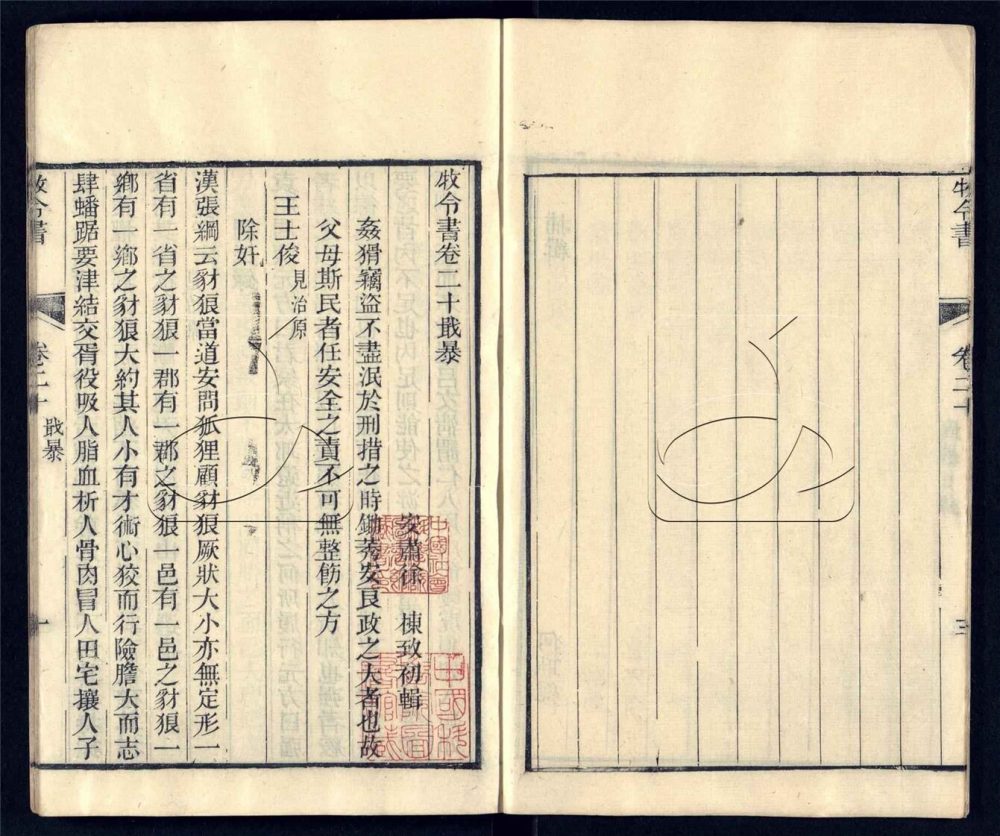 牧令書
卷二十
三
牧令書卷二十戢暴
安肅徐 棟致初輯
姦猾竊盜不盡泯於刑措之時鋤莠安良政之大者也故
父母斯民者任安全之責不可無整飭之方
王士俊見治原
除奸
漢張綱云豺狼當道安問狐狸顧豺狼厥狀大小亦無定形一
省有一省之豺狼一郡有一郡之豺狼一邑有一邑之豺狼一
鄉有一鄉之豺狼大約其人小有才術心狡而行險膽大而志
肆蟠踞要津結交胥役吸人脂血析人骨肉冒人田宅攘人子
牧令書
卷二十
戢暴
一